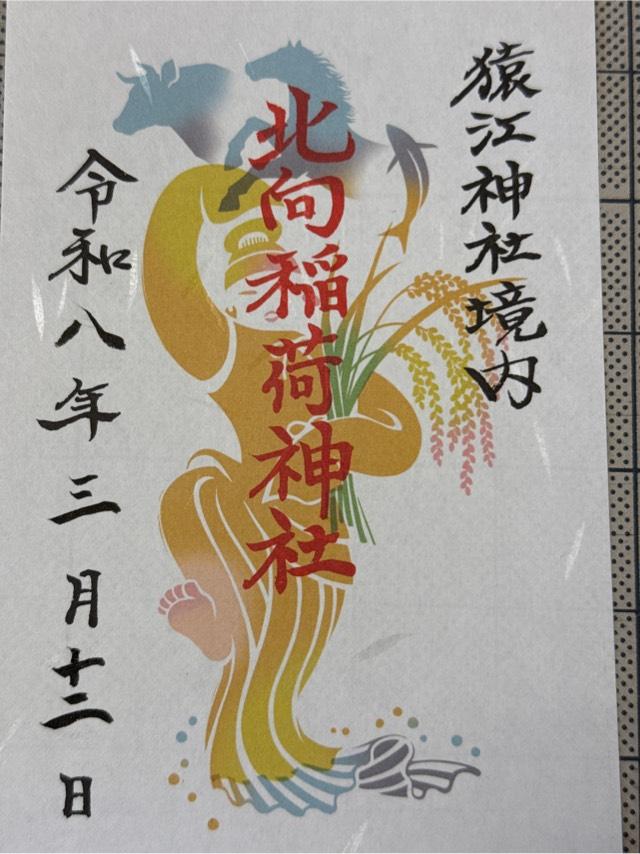 猿江神社境内
北向稲荷神社
令和八年三月十二日